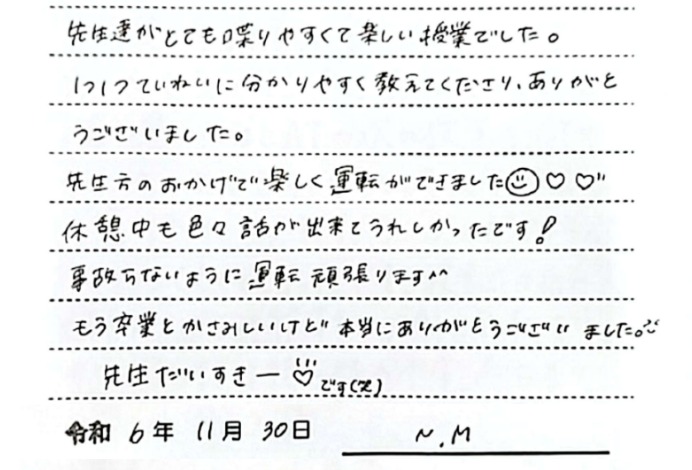 先生達がとても喋りやすくて楽しい授業でした。
1つ1つていねいに分かりやすく教えてくださり、ありがと
うございました。
先生方のおかげで楽しく運転ができました☺♡♡"
休憩中も色々話が出来てうれしかったです!
事故らないように運転頑張ります^^
もう卒業とかさみしいけど本当にありがとうございました。
先生だいすきー♡です(笑)
令和 6年 11月 30日 N.M